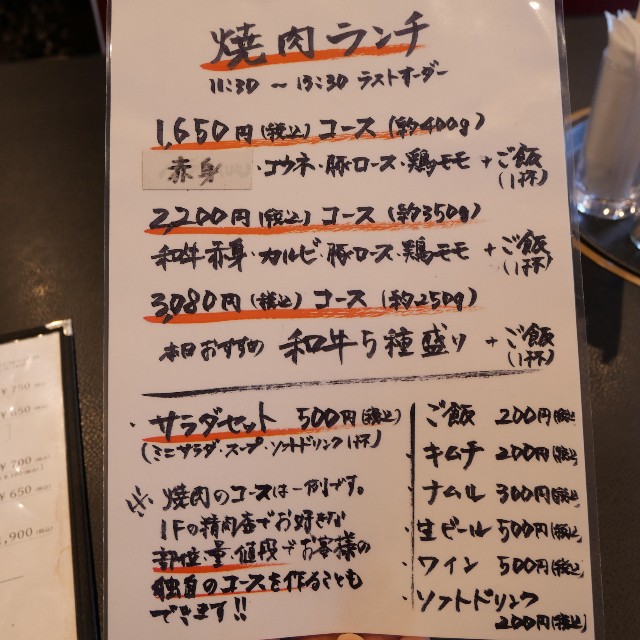 焼肉ランチ
11:30 ~ 13:30 ラストオーダー
1,650円(税込)コース(約400g)
赤身・コウネ・豚ロース・鶏モモ +ご飯
(1杯)
2,200円(税込)コース(約350g)
和牛赤身・カルビ・豚ロース・鶏モモ +ご飯
(1杯)
3,080円(税込)コース(約250g)
本日おすすめ 和牛5種盛り +ご飯
(1杯)
・サラダセット 500円(税込)
(ミニサラダ・スープ・ソフトドリンク1杯)
※焼肉のコースは一例です。
1Fの精肉店でお好きな
部位量値段でお客様の
独自のコースを作ることも
できます!!
・ご飯 200円(税込)
・キムチ 200円(税込)
・ナムル 300円(税込)
・生ビール 500円(税込)
・ワイン 500円(税込)
・ソフトドリンク
200円(税込)
¥750
¥650
,900